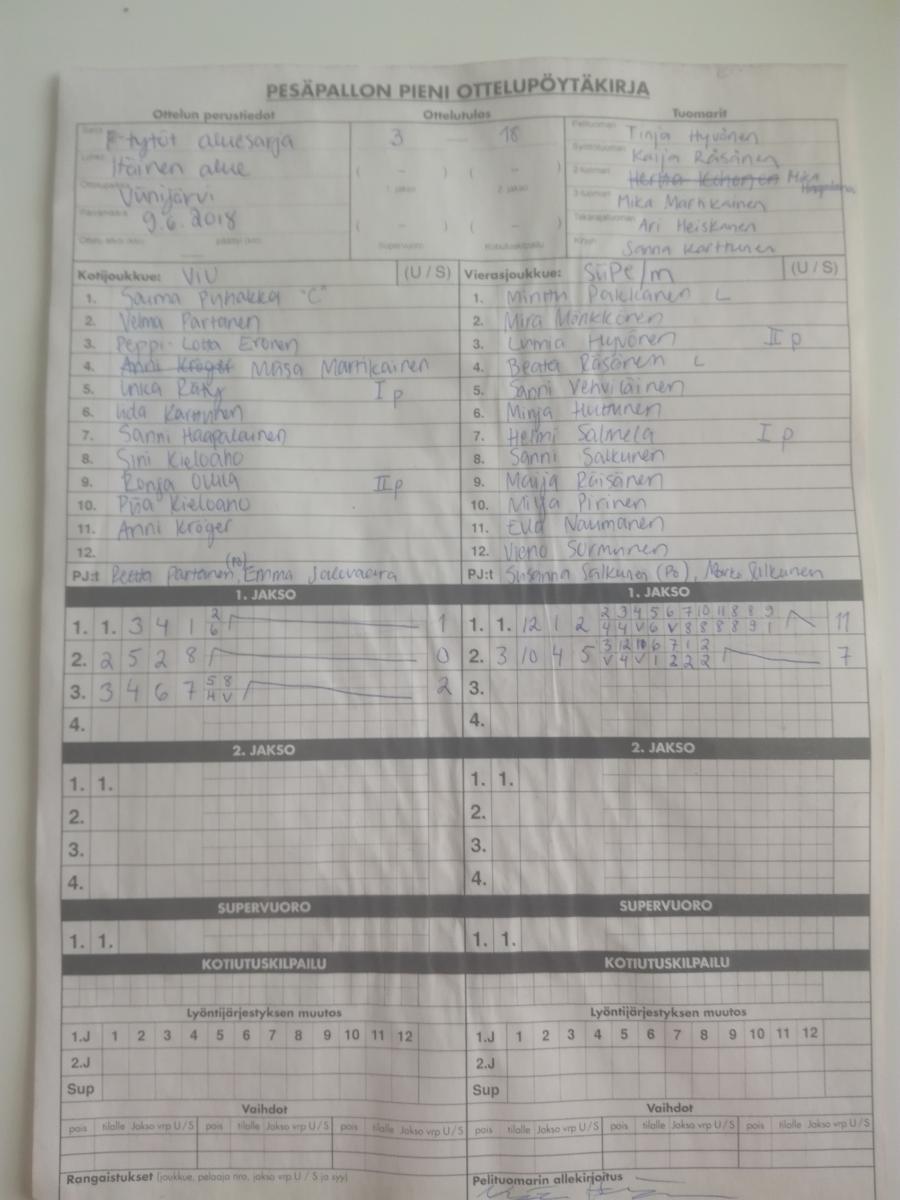 PESÄPALLON PIENI OTTELUPÖYTÄKIRJA
Ottelun perustiedot Ottelutulos Tuomarit
F-tytöt aluesarja
Itäinen alue
Viinijärvi
9.6.2018
3 — 18
( – ) ( – )
1. jakso 2. jakso
( – ) ( – )
Supervuoro Kotiutuskilpailu
Pelituomari Tinja Hyvönen
Syöttötuomari Kaija Räsänen
2-tuomari Mika
3-tuomari Mika Martikainen
Takarajatuomari Ari Heiskanen
Kirjuri Sanna Karttunen
Kotijoukkue: ViU (U / S)
1. Saima Pyhäkkä "C"
2. Velma Partanen
3. Peppi-Lotta Eronen
4. Anni Kröger Miisa Martikainen
5. Inka Räty I p
6. Iida Karttunen
7. Sanni Haapalainen
8. Sini Kieloaho
9. Ronja II p
10. Piia Kieloaho
11. Anni Kröger
12.
PJ:t Reetta Partanen (PO), Emma
Vierasjoukkue: SiiPe/m (U / S)
1. Minttu Pakkanen L
2. Mira Mönkkönen
3. Lumia Hyvönen II p
4. Beata Räsänen L
5. Sanni Vehviläinen
6. Minja Huttunen
7. Helmi Salmela I p
8. Sanni Salkunen
9. Maija Räisänen
10. Milja Pirinen
11. Eevi Naumanen
12. Vieno Sormunen
PJ:t Susanna Salkunen (PO), Marko Salkunen
1. JAKSO
1. 1. 3 4 1 2 6 1
2. 2 5 2 8 0
3. 3 4 6 7 5 8 4 V 2
4.
1. JAKSO
1. 1. 12 1 2 2 3 4 5 6 7 10 11 8 8 9
4 4 V 6 V 8 8 8 8 9 1 11
2. 3 10 4 5 3 12 10 6 7 1 2
V 4 V 1 2 2 2 7
3.
4.
2. JAKSO
1. 1.
2.
3.
4.
2. JAKSO
1. 1.
2.
3.
4.
SUPERVUORO
1. 1.
SUPERVUORO
1. 1.
KOTIUTUSKILPAILU
KOTIUTUSKILPAILU
Lyöntijärjestyksen muutos
1.J 1 2 3 4 5 6 7 8 9 10 11 12
2.J
Sup
Lyöntijärjestyksen muutos
1.J 1 2 3 4 5 6 7 8 9 10 11 12
2.J
Sup
Vaihdot
pois tilalle Jakso vrp U / S pois tilalle Jakso vrp U / S pois tilalle Jakso vrp U / S
Vaihdot
pois tilalle Jakso vrp U / S pois tilalle Jakso vrp U / S pois tilalle Jakso vrp U / S
Rangaistukset (joukkue, pelaaja nro, jakso vrp U / S ja syy)
Pelituomarin allekirjoitus